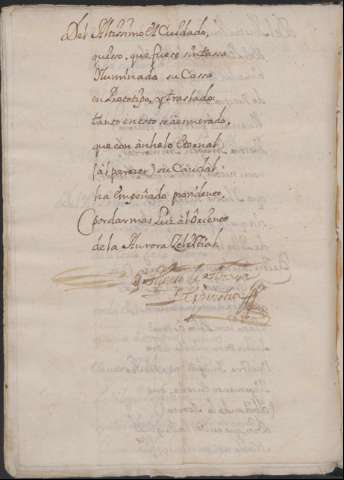 Del Altissimo el Cuidado,
quiso, que fuese sin tassa
Iluminada su Cassa
en Prototipo, y traslado:
tanto en esto se à esmerado,
que con ànhelo Eternal,
(àl parecer) su Caudal
ha Empeñado providente
Por dar mas Luz àl Oriente
de la Aurora Zelestial.